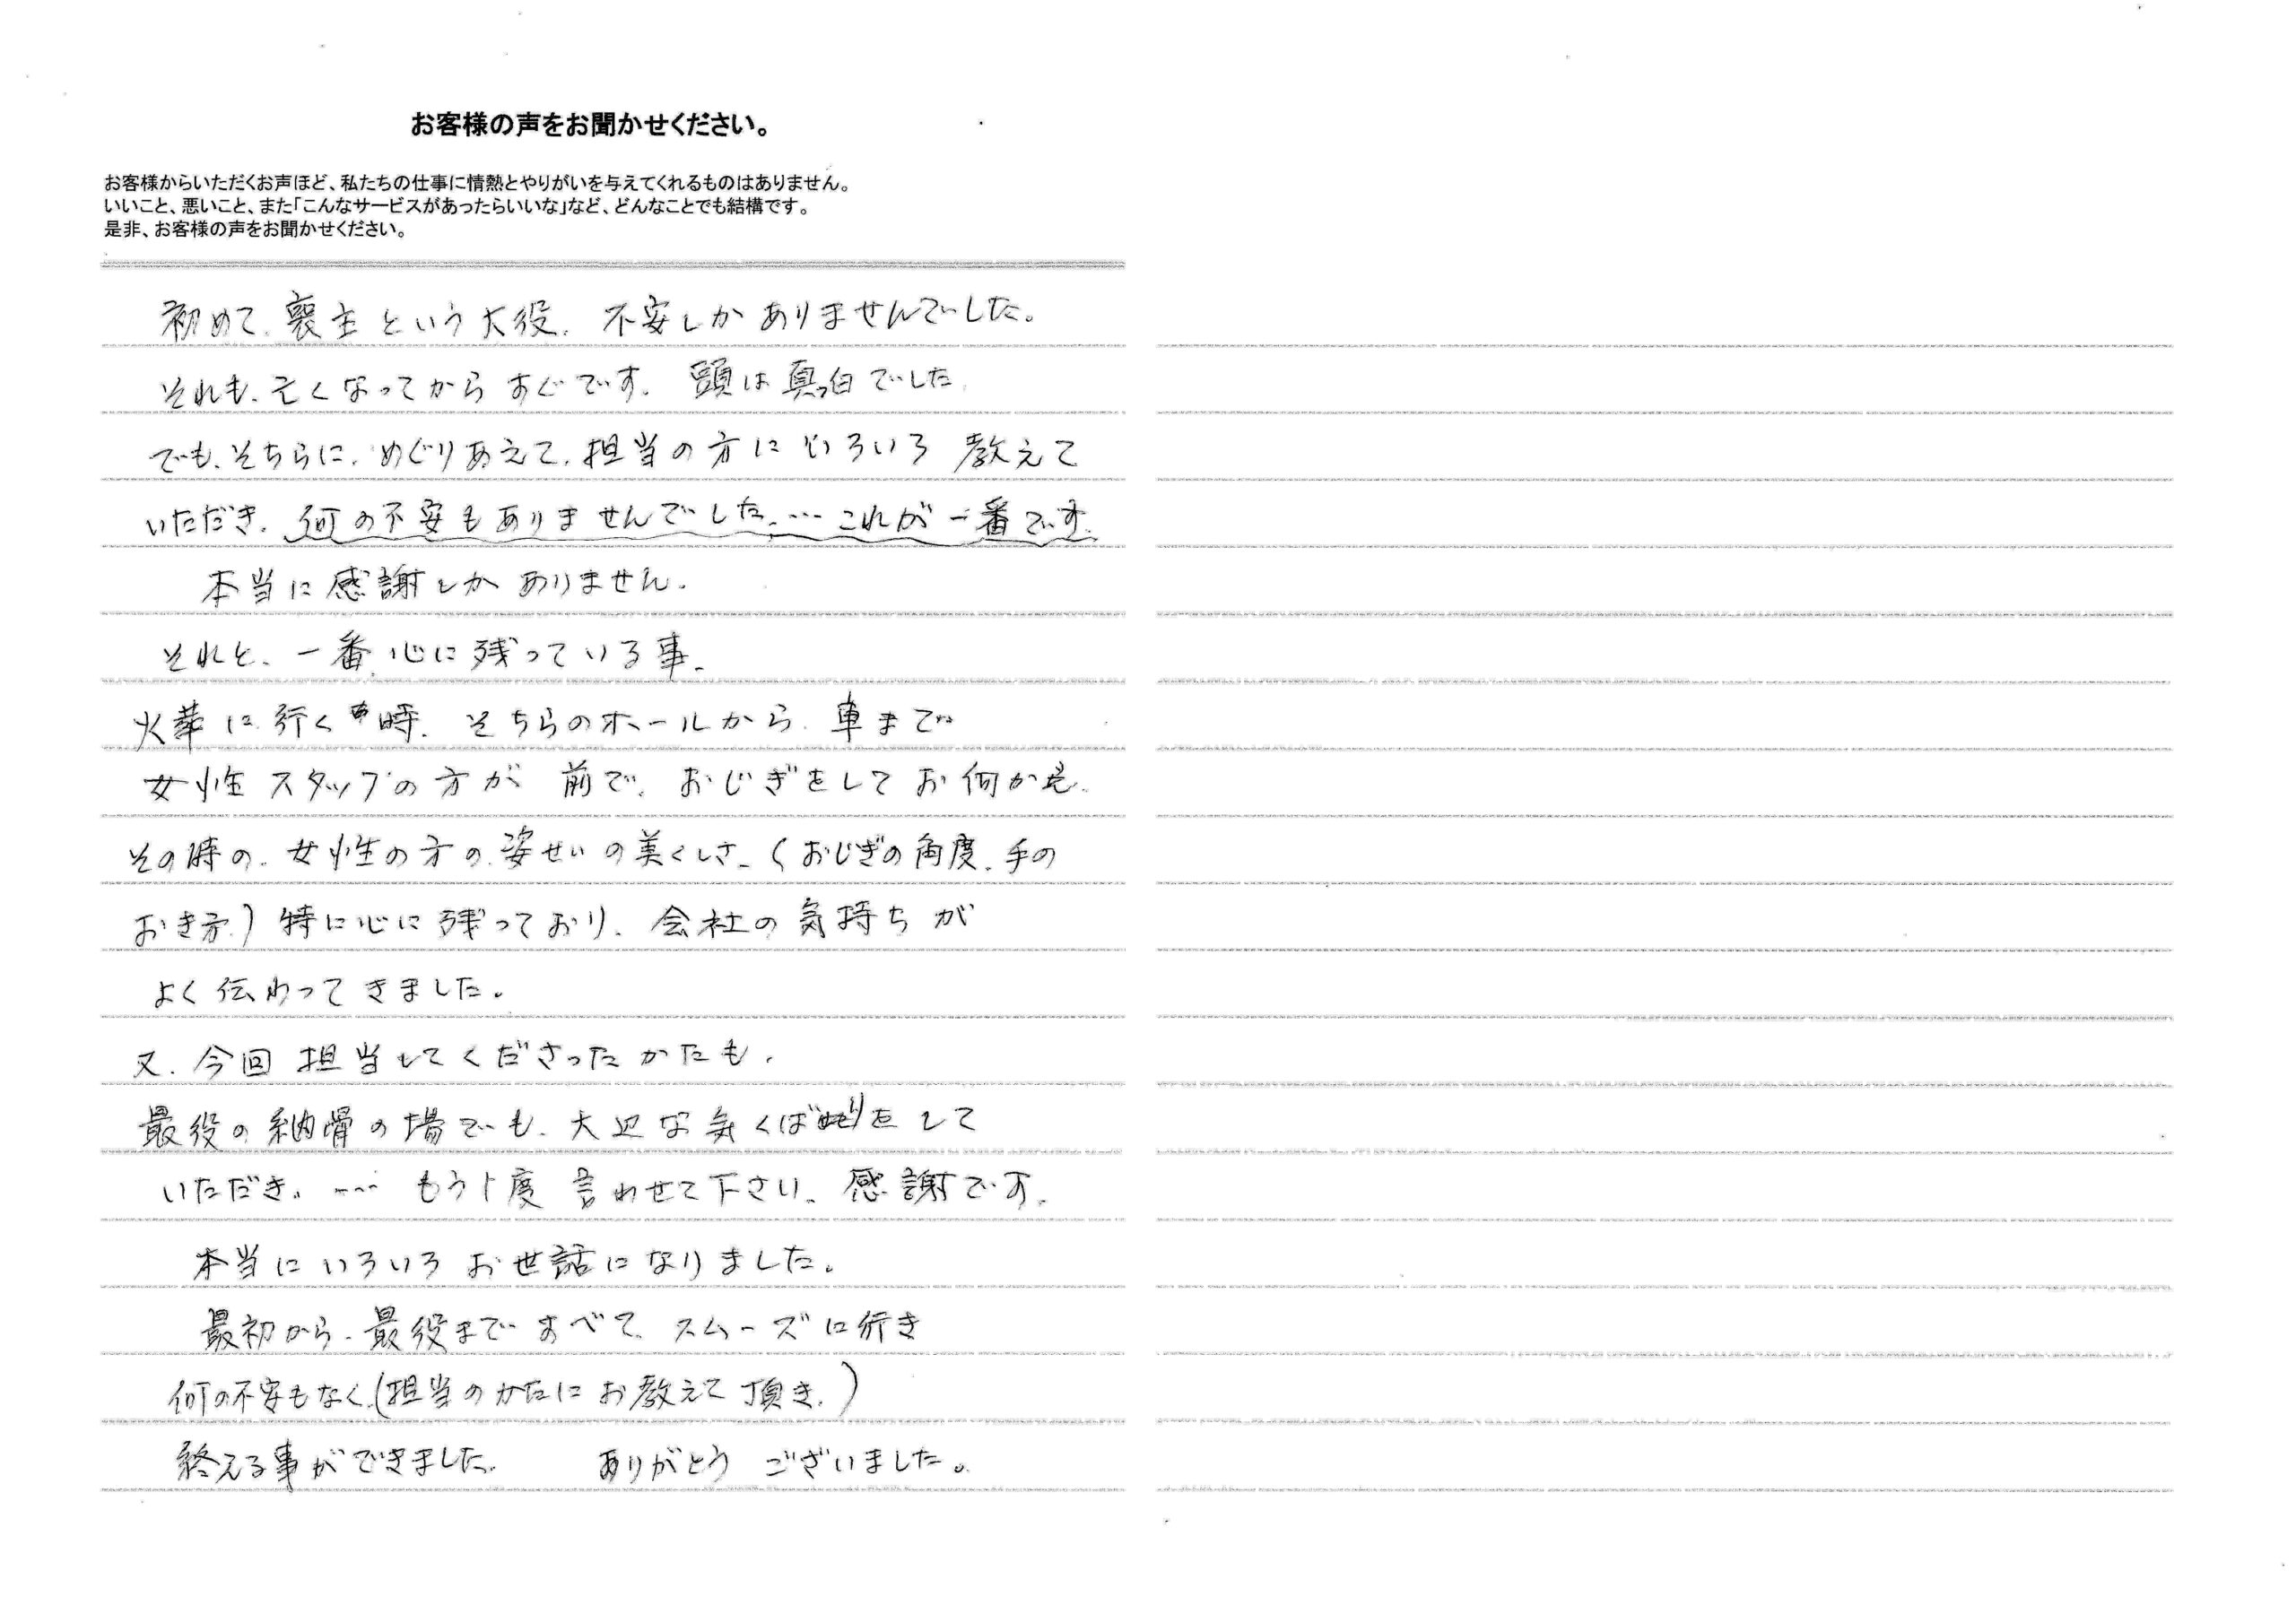 お客様の声をお聞かせください。
お客様からいただくお声ほど、私たちの仕事に情熱とやりがいを与えてくれるものはありません。
いいこと、悪いこと、また「こんなサービスがあったらいいな」など、どんなことでも結構です。
是非、お客様の声をお聞かせください。
初めて、喪主という大役、不安しかありませんでした。
それも、亡くなってからすぐです。頭は真っ白でした
でも、そちらに、めぐりあえて、担当の方にいろいろ教えて
いただき、何の不安もありませんでした、…これが一番です、
本当に感謝しかありません。
それと、一番心に残っている事、
火葬に行く時、そちらのホールから、車まで
女性スタッフの方が前で、おじぎをしてお
その時の、女性の方の姿せいの美くしさ、(おじぎの角度、手の
おき方)特に心に残っており、会社の気持ちが
よく伝わってきました。
又、今回担当してくださったかたも、
最役の納骨の場でも、大辺な気くばりをして
いただき。…もう1度言わせて下さい、感謝です、
本当にいろいろお世話になりました。
最初から、最役まですべて、スムーズに行き
何の不安もなく、(担当のかたにお教えて頂き、)
終える事ができました、 ありがとうございました。